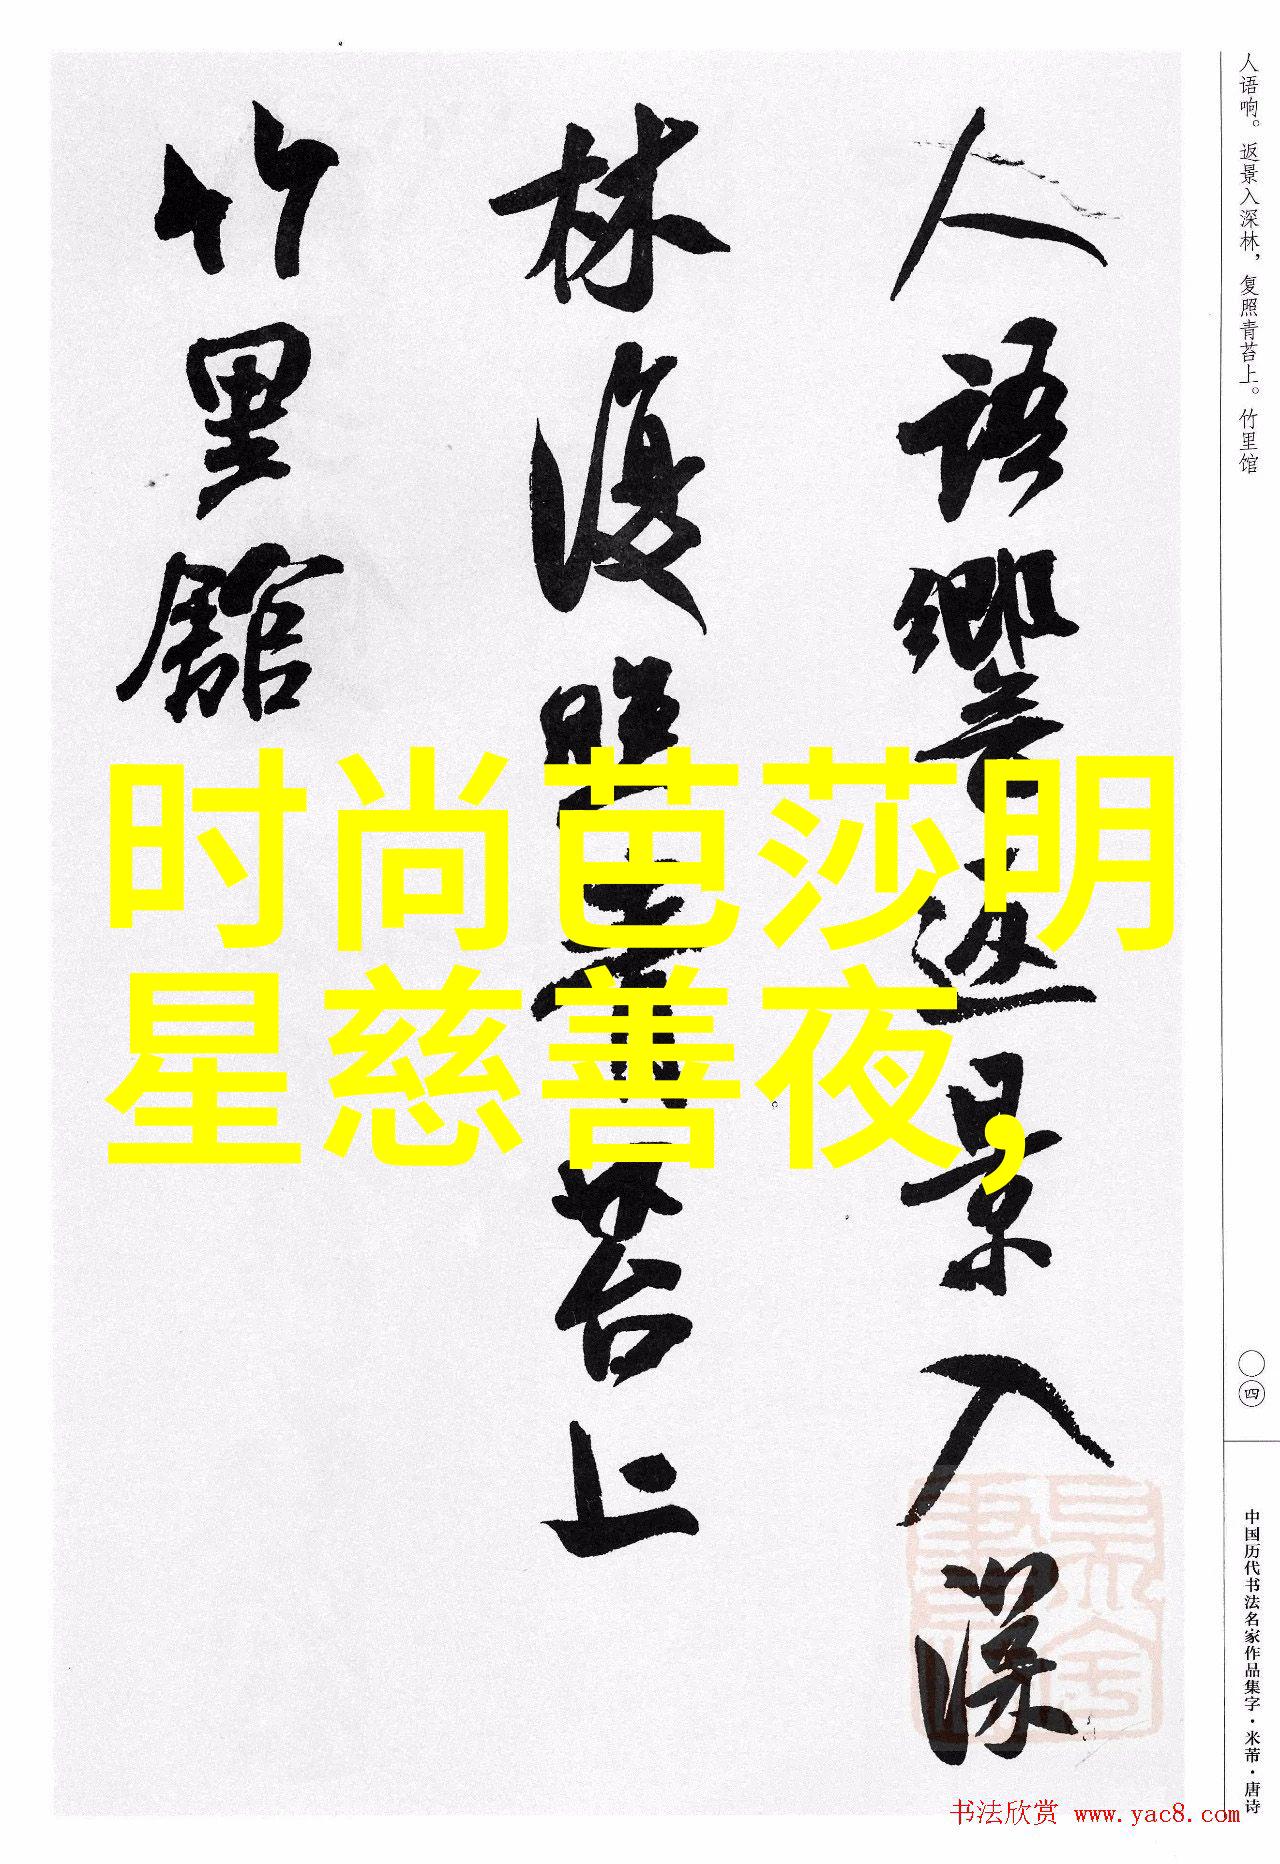 人语响。返景入深林，复照青苔上。竹里馆
人語響返景入深
林復照青苔上
竹里館
时尚芭莎明
星慈善夜，
〇四
中国历代书法名家作品集字·米芾·唐诗
书法欣赏 www.yac8.com